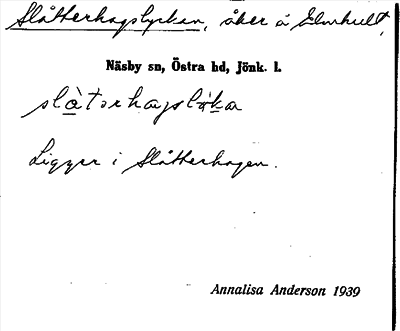 Slåtterhagslyckan, åker å Elmhult,
Näsby sn, Östra hd, Jönk. l.
slàtorhagslöka
Ligger i Slåtterhagen.
Annalisa Anderson 1939